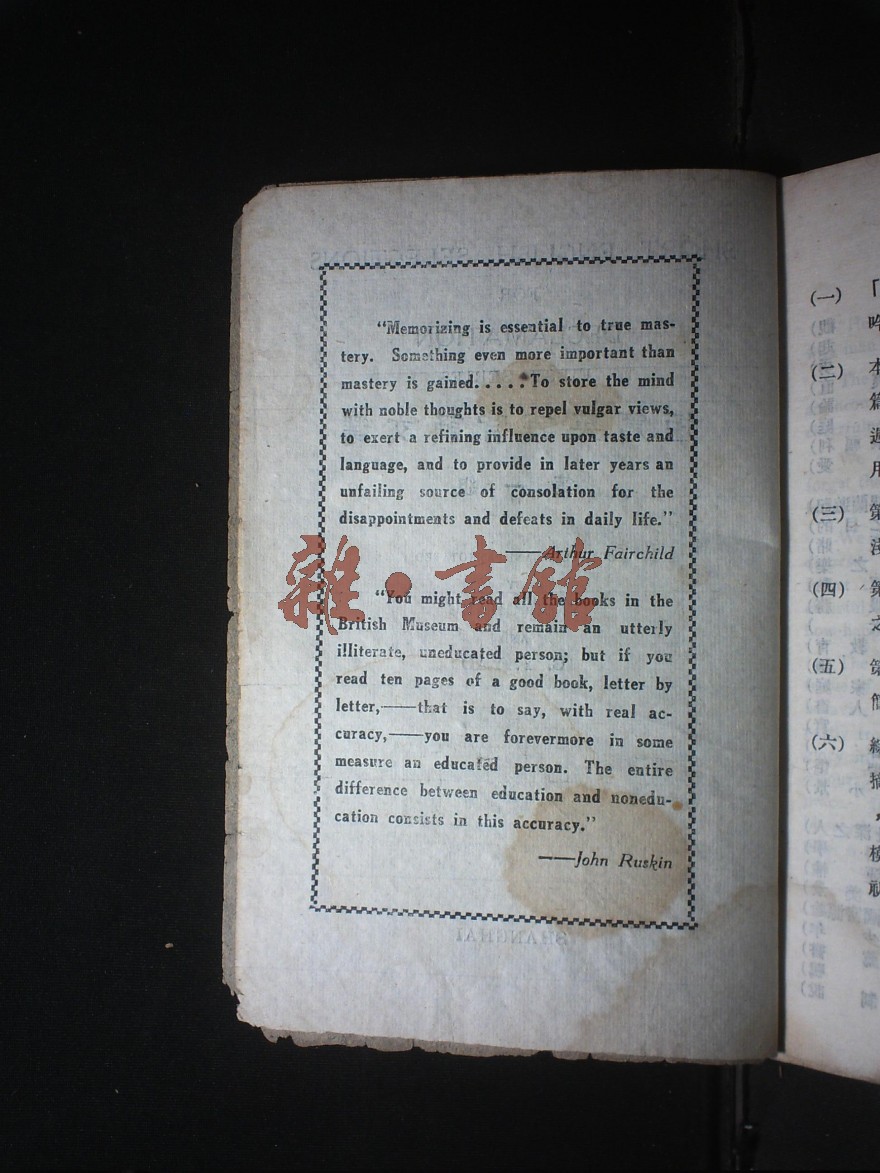 "Memorizing is essential to true mas-
tery. Something even more important than
mastery is gained.....To store the mind
with noble thoughts is to repel vulgar views,
to exert a refining influence upon taste and
language, and to provide in later years an
unfailing source of consolation for the
disappointments and defeats in daily life."
——Arthur Fairchild
"You might read all the books in the
British Museum and remain an utterly
illiterate, uneducated person; but if you
read ten pages of a good book, letter by
letter,——that is to say, with real ac-
curacy,——you are forevermore in some
measure an educated person. The entire
difference between education and nonedu-
cation consists in this accuracy."
——John Ruskin
雜·書館
(一) 「
(二) 本
篇
用
(三) 第
(四) 第
之
(五) 第
(六)